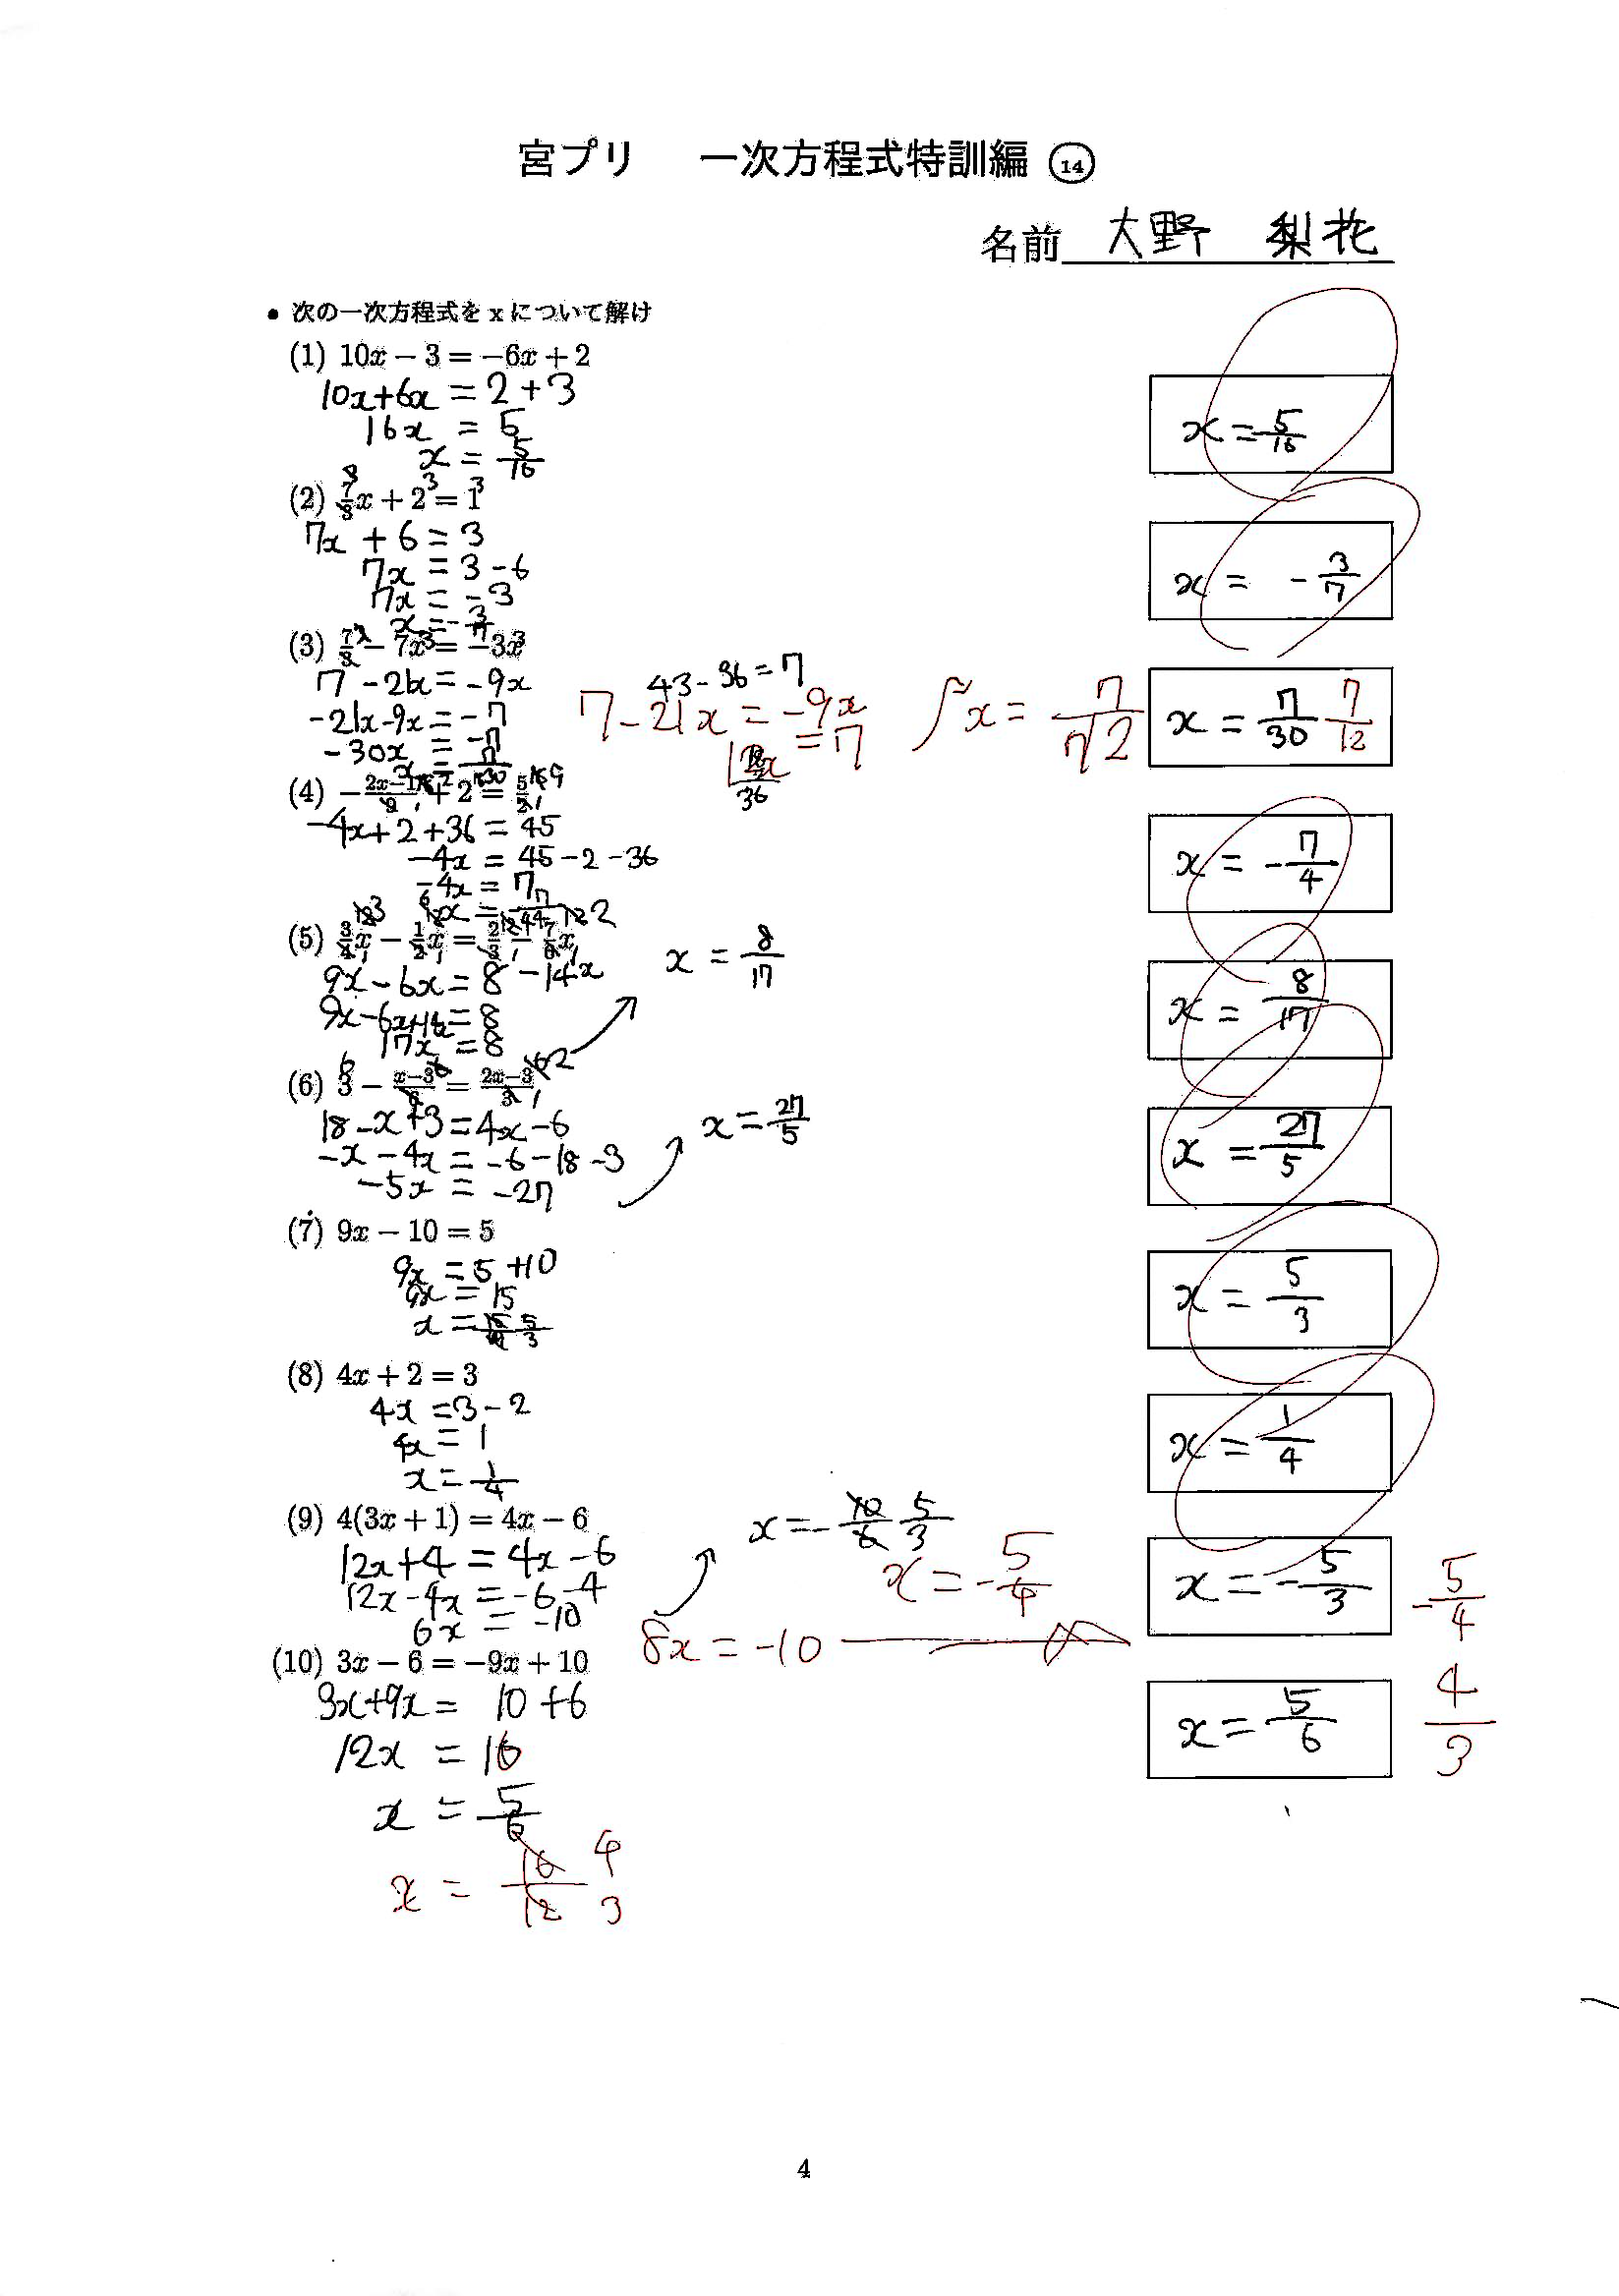 宮プリ 一次方程式特訓編 ⑭
名前 大野 梨花
• 次の一次方程式を x について解け
(1) 10x − 3 = −6x + 2
10x+6x = 2+3
16x = 5
x = 5/16
x = 5/16
(2) 7/3x + 2 = 1
7x + 6 = 3
7x = 3-6
7x = -3
x = -3/7
x = -3/7
(3) 7/3 − 7x = −3x
7 - 21x = -9x
-21x-9x = -7
-30x = -7
x = 7/30
43-36=7
7-21x = -9x
12x = 7
36
x = 7/12
x = 7/30 7/12
(4) −(2x−1)/9 + 2 = 5/2
-4x+2+36 = 45
-4x = 45-2-36
-4x = 7
x = -7/4
x = -7/4
(5) 3/4x − 1/2x = 2/3 − 7/6x
9x-6x = 8-14x
9x-6x+14x = 8
17x = 8
x = 8/17
x = 8/17
(6) 3 − (x−3)/6 = (2x−3)/3
18-x+3 = 4x-6
-x-4x = -6-18-3
-5x = -27
x = 27/5
x = 27/5
(7) 9x − 10 = 5
9x = 5+10
9x = 15
x = 15/9 5/3
x = 5/3
(8) 4x + 2 = 3
4x = 3-2
4x = 1
x = 1/4
x = 1/4
(9) 4(3x + 1) = 4x − 6
12x+4 = 4x-6
12x-4x = -6-4
6x = -10
x = -10/6 5/3
x = -5/4
8x = -10
x = -5/3
-5/4
(10) 3x − 6 = −9x + 10
3x+9x = 10+6
12x = 16
x = 5/6
x = 16/12 4/3
x = 5/6
4/3
4